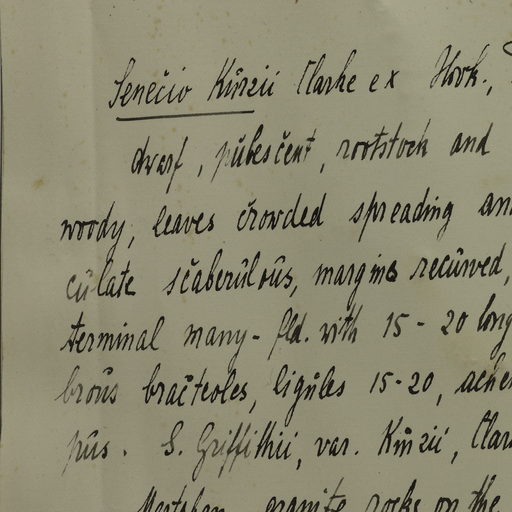 Senecio Kurzii Clarke ex Hook.,
dwarf, pubescent, rootstock and
woody, leaves crowded spreading an
culate scaberulous, margins recurved,
terminal many-fld. with 15-20 long
brous bracteoles, ligules 15-20, ache
pus. S. Griffithii, var. Kurzii, Clar
granite rocks on the